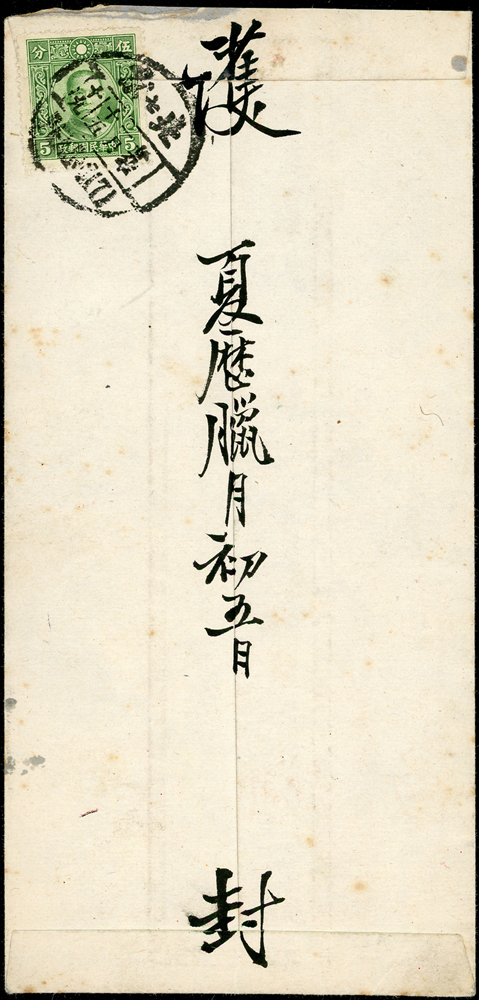 護
夏歷臘月初五日
封
伍 分
5 政郵國民華中 5